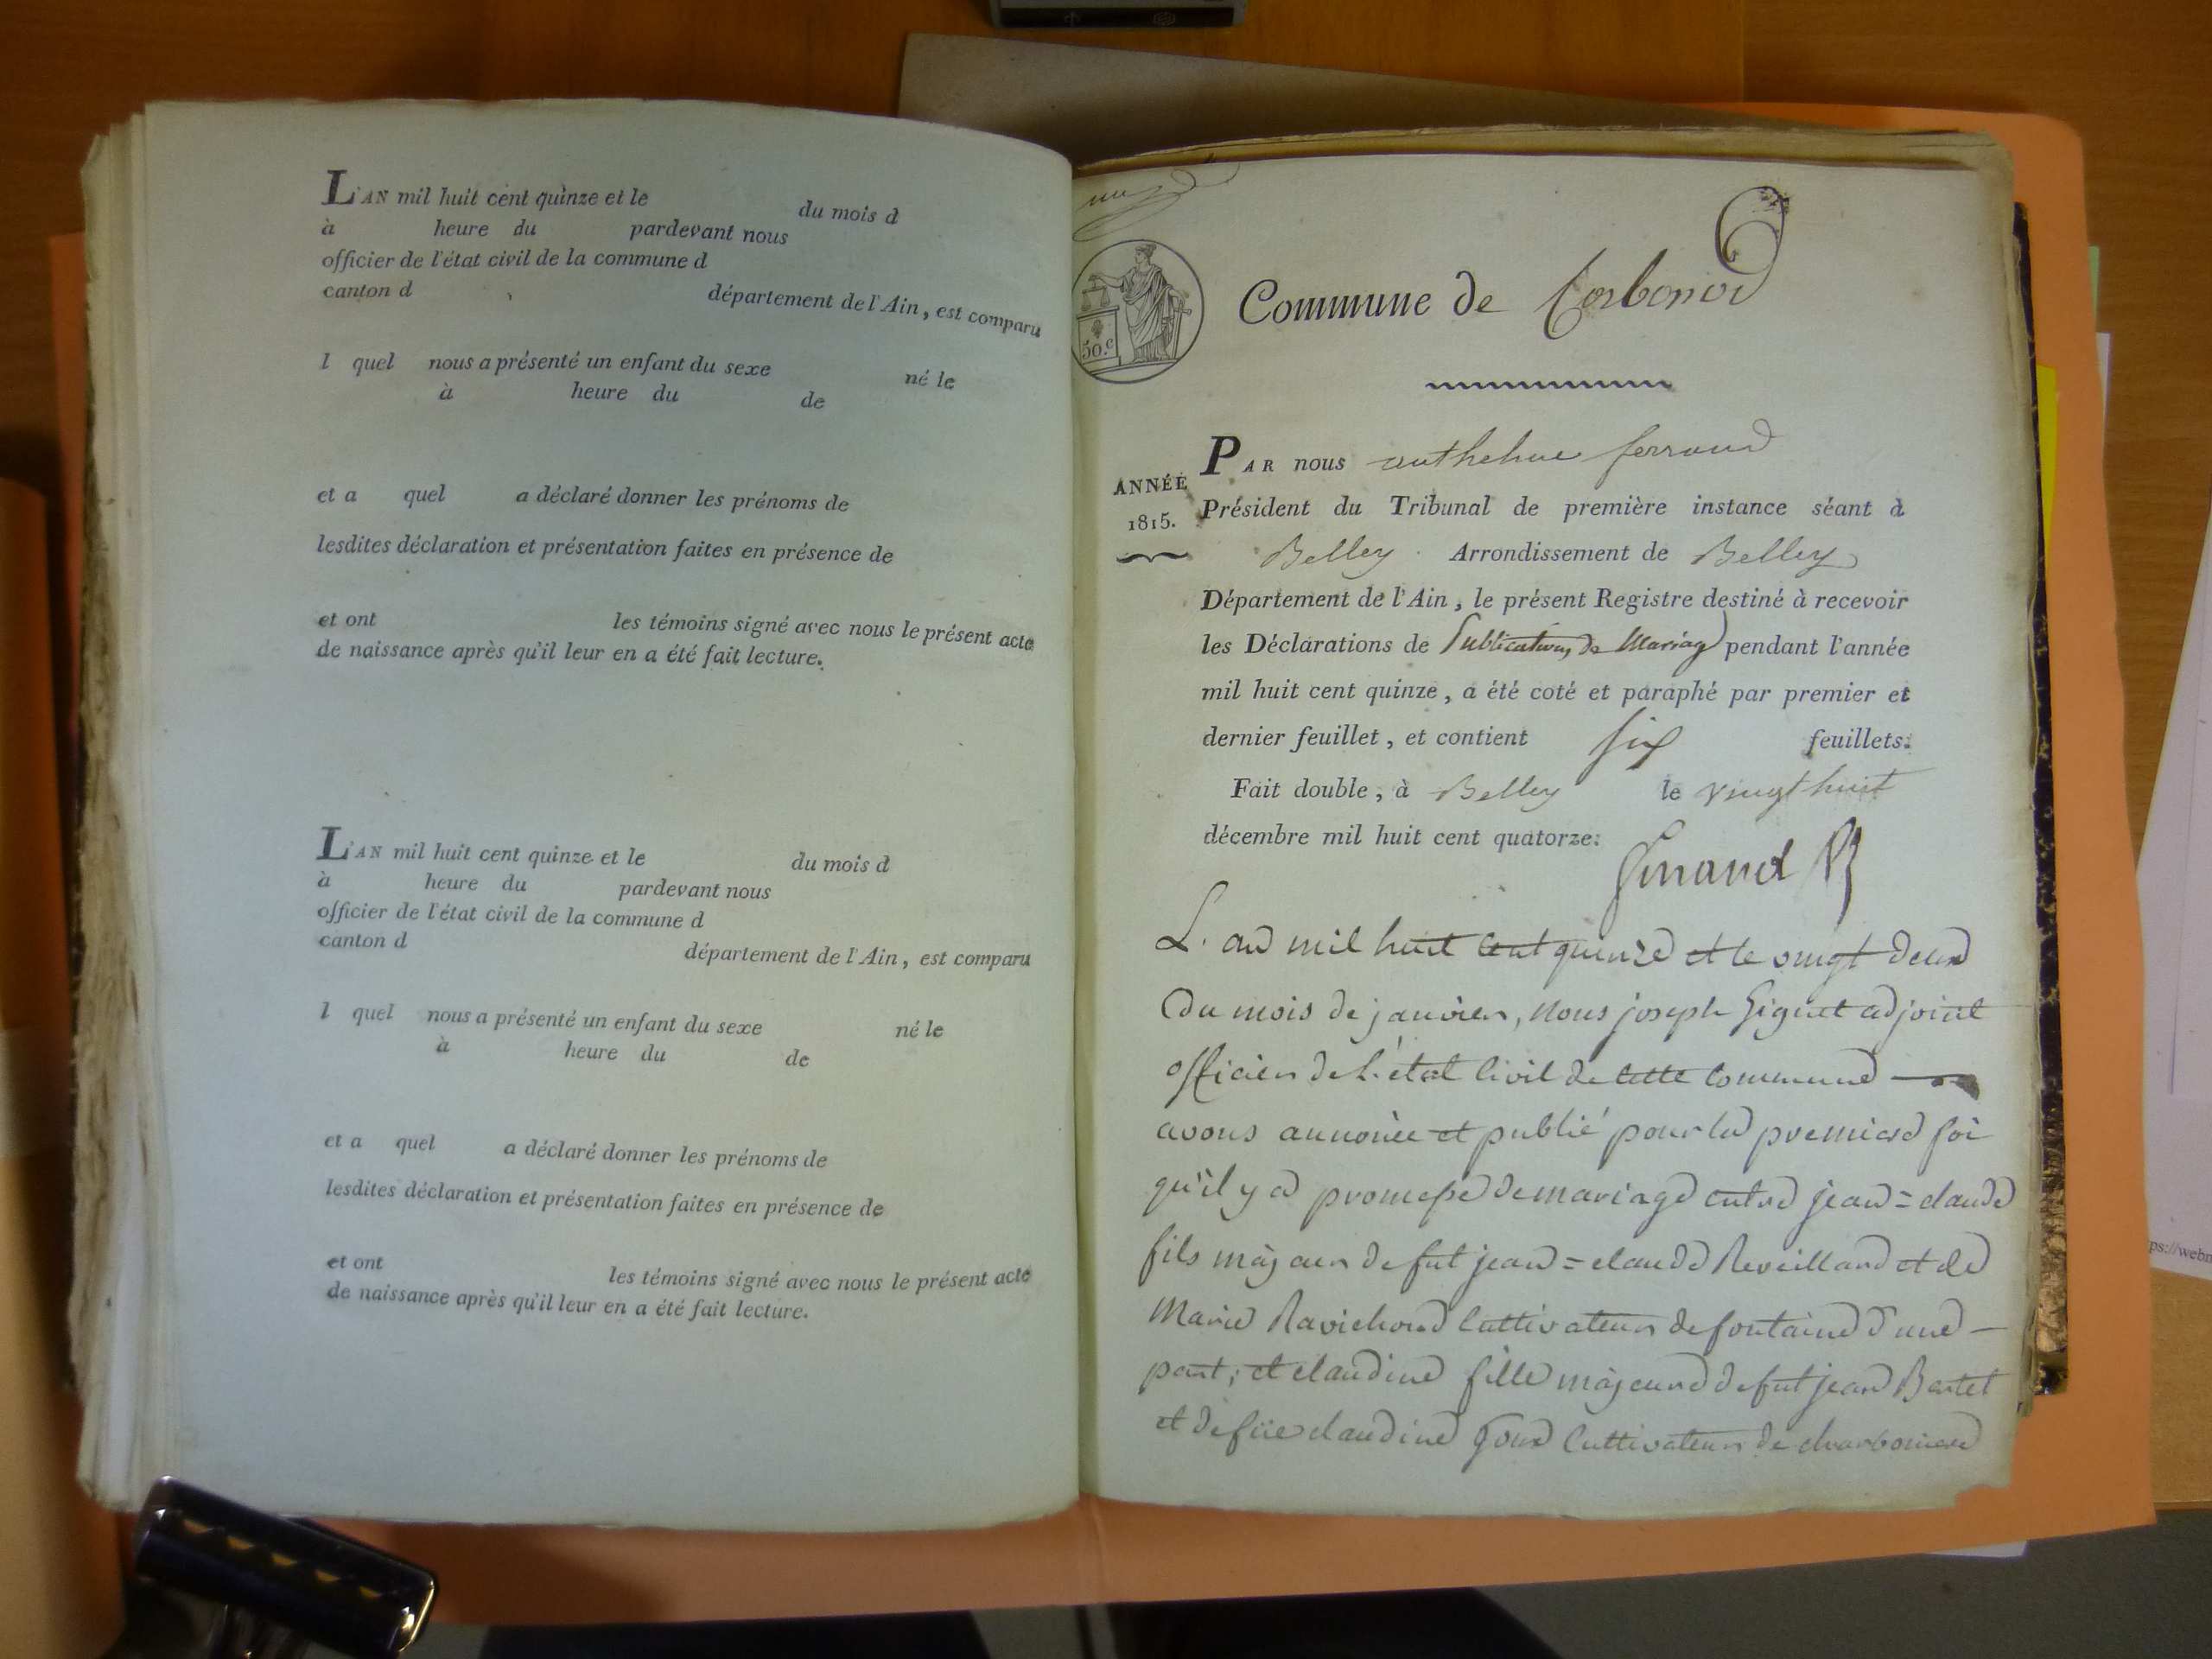 L'AN mil huit cent quinze et le du mois d
à heure du pardevant nous
officier de l'état civil de la commune d
canton d département de l'Ain, est comparu
l quel nous a présenté un enfant du sexe né le
à heure du de
et a quel a déclaré donner les prénoms de
lesdites déclaration et présentation faites en présence de
et ont les témoins signé avec nous le présent acte
de naissance après qu'il leur en a été fait lecture.
L'AN mil huit cent quinze et le du mois d
à heure du pardevant nous
officier de l'état civil de la commune d
canton d département de l'Ain, est comparu
l quel nous a présenté un enfant du sexe né le
à heure du de
et a quel a déclaré donner les prénoms de
lesdites déclaration et présentation faites en présence de
et ont les témoins signé avec nous le présent acte
de naissance après qu'il leur en a été fait lecture.
50.c
Commune de Corbonod
ANNÉE
1815.
PAR nous anthelme ferrand
Président du Tribunal de première instance séant à
Belley Arrondissement de Belley
Département de l'Ain, le présent Registre destiné à recevoir
les Déclarations de Publications de Mariage pendant l'année
mil huit cent quinze, a été coté et paraphé par premier et
dernier feuillet, et contient six feuillets.
Fait double, à Belley le vingt huit
décembre mil huit cent quatorze.
L'an mil huit cent quinze et le vingt deux
Du mois de janvier, nous joseph Gignet adjoint
officier de l'état civil de cette commune
avons annoncée et publié pour la premiere foi
qu'il y a promesse de mariage entre jean=claude
fils majeur de fut jean=claude Reveillard et de
Marie Ravichond Cultivateur de fontaine d'une
part; et claudine fille majeure de fut jean Bartet
et de füe claudine Goux Cultivateur de charboniere
ps://webm